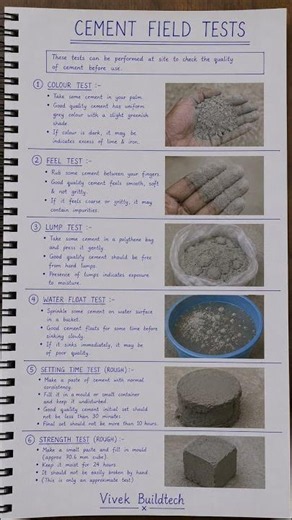 CEMENT FIELD TESTS
These tests can be performed at site to check the quality
of cement before use.
1 COLOUR TEST :-
• Take some cement in your palm.
• Good quality cement has uniform
grey colour with a slight greenish
shade.
• If colour is dark, it may be
indicates excess of lime & iron.
2 FEEL TEST :-
• Rub some cement between your fingers.
• Good quality cement feels smooth, soft
& not gritty.
• If it feels coarse or gritty, it may
contain impurities.
3 LUMP TEST :-
• Take some cement in a polythene bag
and press it gently.
• Good quality cement should be free
from hard lumps.
• Presence of lumps indicates exposure
to moisture.
4 WATER FLOAT TEST :-
• Sprinkle some cement on water surface
in a bucket.
• Good cement floats for some time before
sinking slowly.
• If it sinks immediately, it may be
of poor quality.
5 SETTING TIME TEST (ROUGH) :-
• Make a paste of cement with normal
consistency.
• Fill it in a mould or small container
and keep it undisturbed.
• Good quality cement initial set should
not be less than 30 minutes.
• Final set should not be more than 10 hours.
6 STRENGTH TEST (ROUGH) :-
• Make a small paste and fill in mould
(approx 70.6 mm cube).
• Keep it moist for 24 hours.
• It should not be easily broken by hand.
• (This is only an approximate test)
Vivek Buildtech